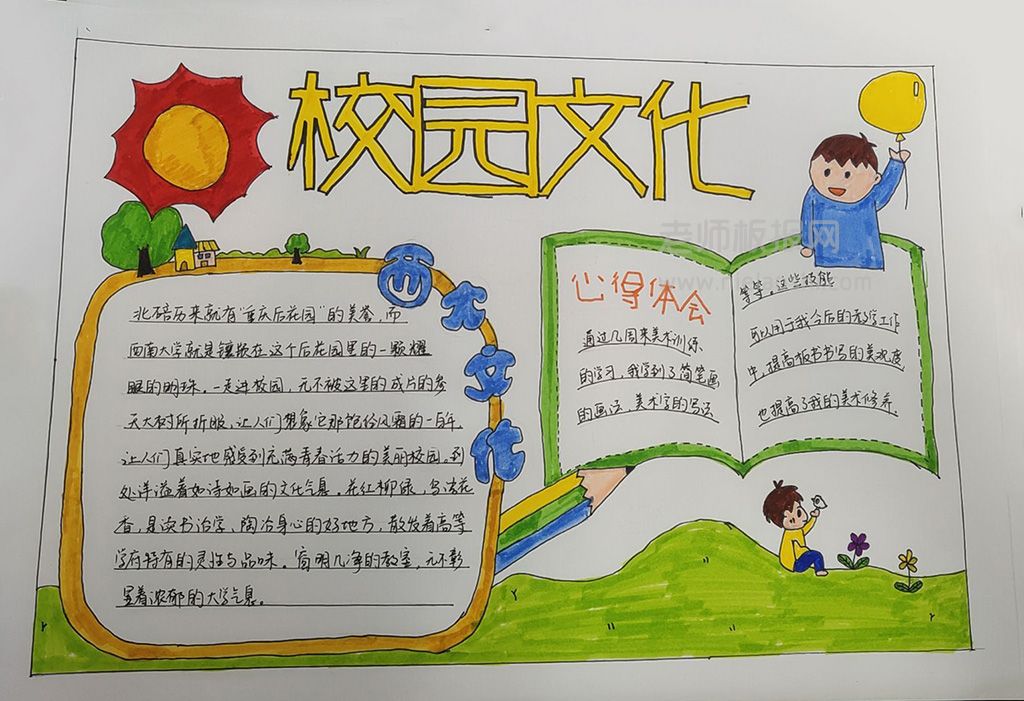 校园文化
西大文化
北碚历来就有“重庆后花园”的美誉，而
西南大学就是镶嵌在这个后花园里的一颗耀
眼的明珠。一走进校园，无不被这里的成片的参
天大树所折服，让人们想象它那饱经风霜的一百年，
让人们真实地感受到充满青春活力的美丽校园。到
处洋溢着如诗如画的文化气息。花红柳绿，鸟语花
香，是读书治学、陶冶身心的好地方，散发着高等
学府特有的灵性与品味。窗明几净的教室，无不彰
显着浓郁的大学气息。
心得体会
通过几周来美术训练、
的学习，我学到了简笔画
的画法、美术字的写法
等等。这些技能
可以用于我今后的教学工作
中，提高板书书写的美观度
也提高了我的美术修养。
老师板报网